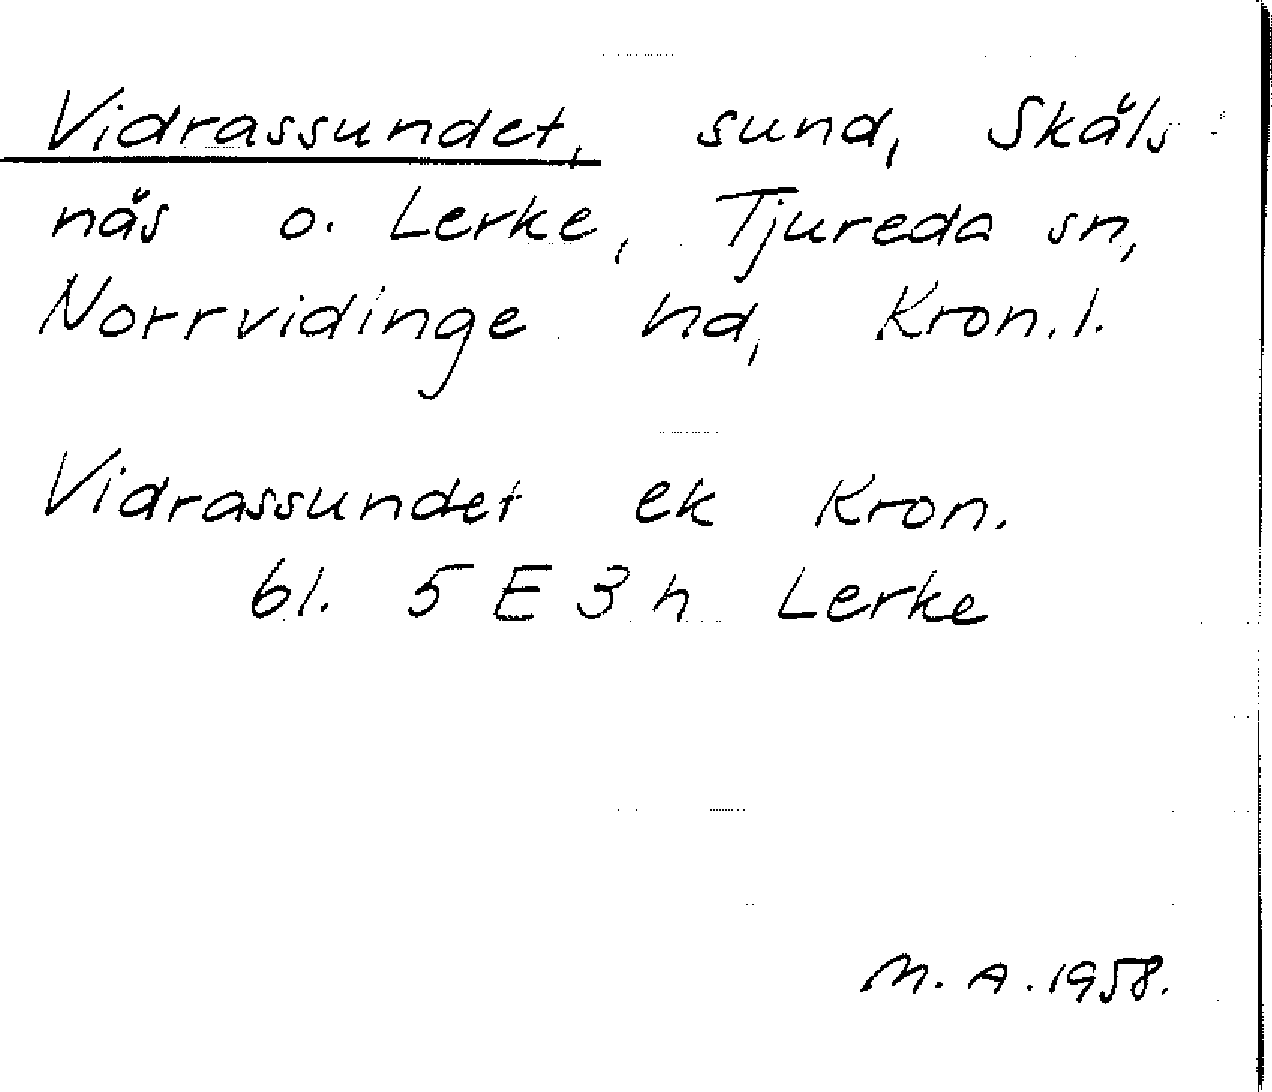 Vidrassundet, sund, Skäls-
näs o. Lerke, Tjureda sn,
Norrvidinge hd, Kron.l.
Vidrassundet ek Kron.
bl. 5 E 3 h Lerke
M. A. 1958.